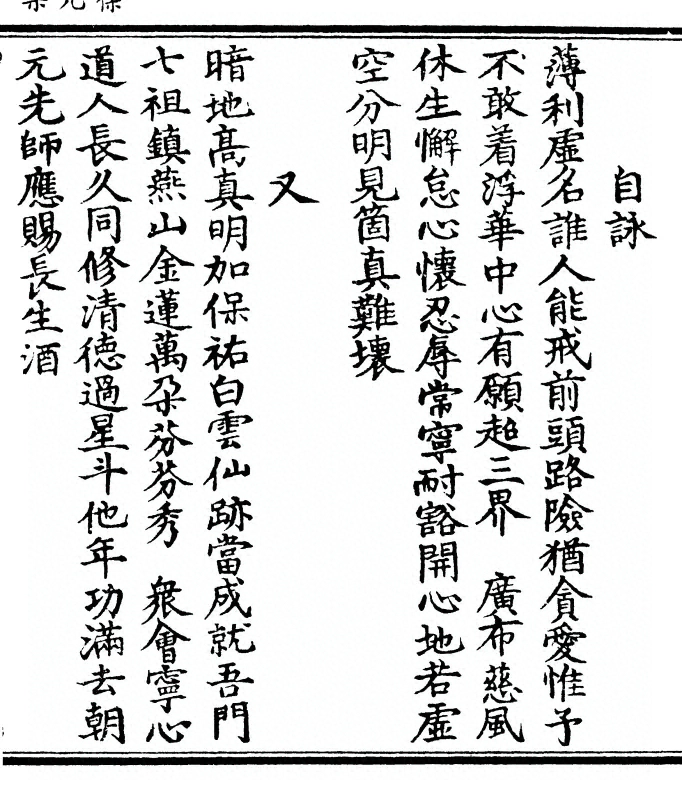 自詠
薄利虛名誰人能戒前頭路險猶貪愛惟予
不敢着浮華中心有願超三界　廣布慈風
休生懈怠心懷忍辱常寧耐豁開心地若虛
空分明見箇真難壞
又
暗地高真明加保祐白雲仙跡當成就吾門
七祖鎮燕山金蓮萬朶芬芬秀　衆會寧心
道人長久同修清德過星斗他年功滿去朝
元先師應賜長生酒